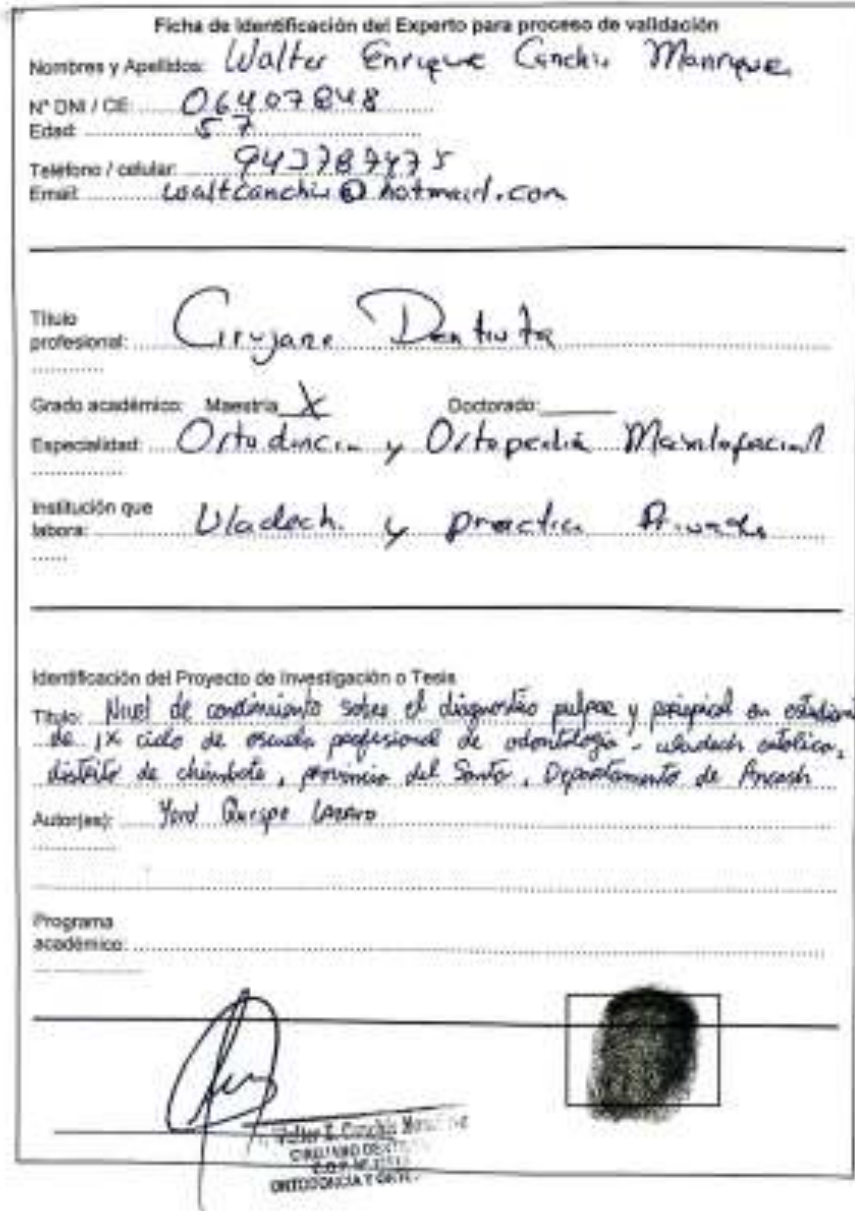 Ficha de Identificación del Experto para proceso de validación
Nombres y Apellidos: Walter Enrique Canchis Manrique
N° DNI / CE: 06407848
Edad: 57
Teléfono / celular: 943787475
Email: waltcanchis@hotmail.com
Título
profesional: Cirujano Dentista
Grado académico: Maestría X Doctorado:
Especialidad: Ortodoncia y Ortopedia Maxilofacial
Institución que
labora: Uladech. y practica Privada
Identificación del Proyecto de Investigación o Tesis
Título: Nivel de conocimiento sobre el diagnostico pulpar y periapical en
de IX ciclo de escuela profesional de odontología - uladech católica,
distrito de chimbote, provincia del Santa, Departamento de Ancash
Autor(es): Quispe Lazaro
Programa
académico:
Walter E. Canchis
CIRUJANO
C.O.P.
ORTODONCIA Y